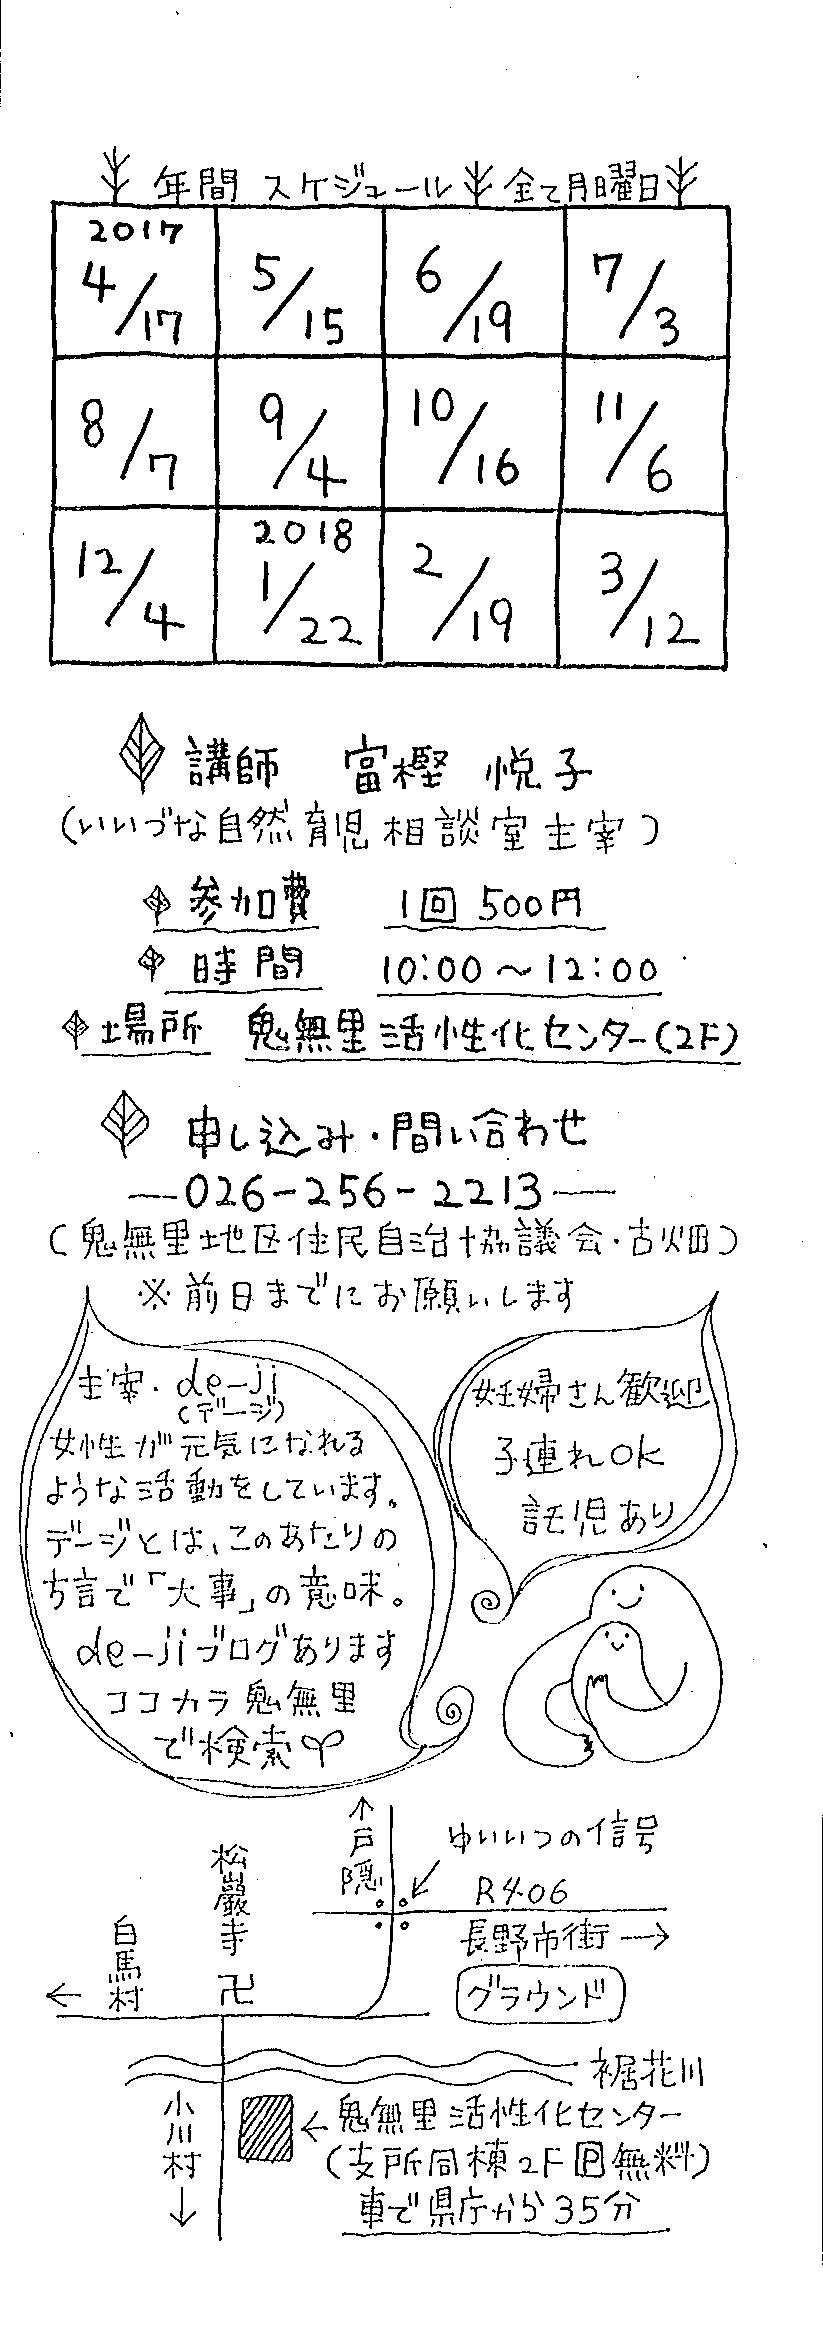 年間 スケジュール 全て月曜日
2017
4/17 5/15 6/19 7/3
8/7 9/4 10/16 11/6
2018
12/4 1/22 2/19 3/12
講師 富樫 悦子
(いいづな自然育児相談室主宰)
参加費 1回 500円
時間 10:00〜12:00
場所 鬼無里活性化センター(2F)
申し込み・問い合わせ
—026-256-2213—
(鬼無里地区住民自治協議会・古畑)
※前日までにお願いします
主宰・de-ji
(デージ)
女性が元気になれる
ような活動をしています。
デージとは、このあたりの
方言で「大事」の意味。
de-jiブログあります
ココカラ鬼無里
で検索
妊婦さん歓迎
子連れOK
託児あり
↑戸隠
ゆいいつの信号
R406
長野市街→
松巖寺
卍
←白馬村
グラウンド
裾花川
小川村↓
←鬼無里活性化センター
(支所同棟2F P無料)
車で県庁から35分